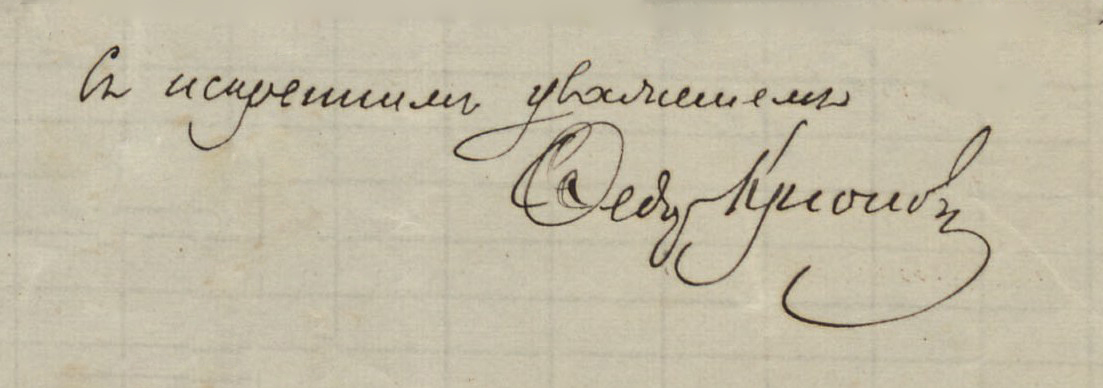 Съ искреннимъ уваженіемъ
Ѳедоръ Крюковъ